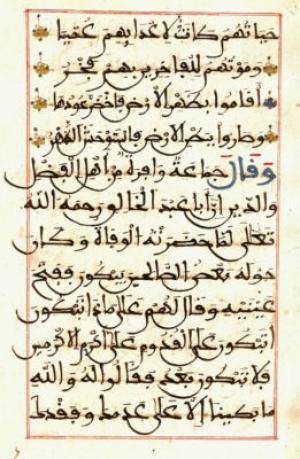 حياتهم كانت لاعدابهم عميا
وموتهم للفاخرين بهم فخر
أقاموا بظهر الارض فاخضر عودها
وصاروا ببطن الارض فاستوحش الظهر
وقال جماعة وافرة من أهل الفضل
والدين ان أبا عبد الخالق رحمه الله
تعلى لما حضرته الوفاة وكان
حوله بعض الصالحين يبكون ففتح
عينيه وقال لهم على ماذا تبكون
أتبكون على القدوم على أكرم الاكرمين
فلا تبكون بعد فقالوا له والله
ما بكينا إلا على عدمك وفقدك